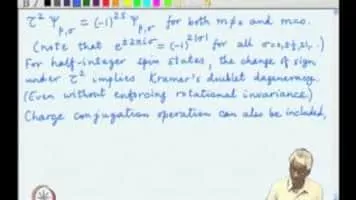 τ² Ψ_{p,σ} = (-1)^{2s} Ψ_{p,σ} for both m≠0 and m=0.
(note that e^{±2πiσ} = (-1)^{2|σ|} for all σ=0,±½,±1,..)
For half-integer spin states, the change of sign
under τ² implies Kramer's doublet degeneracy.
(Even without enforcing rotational invariance)
Charge conjugation operation can also be included,